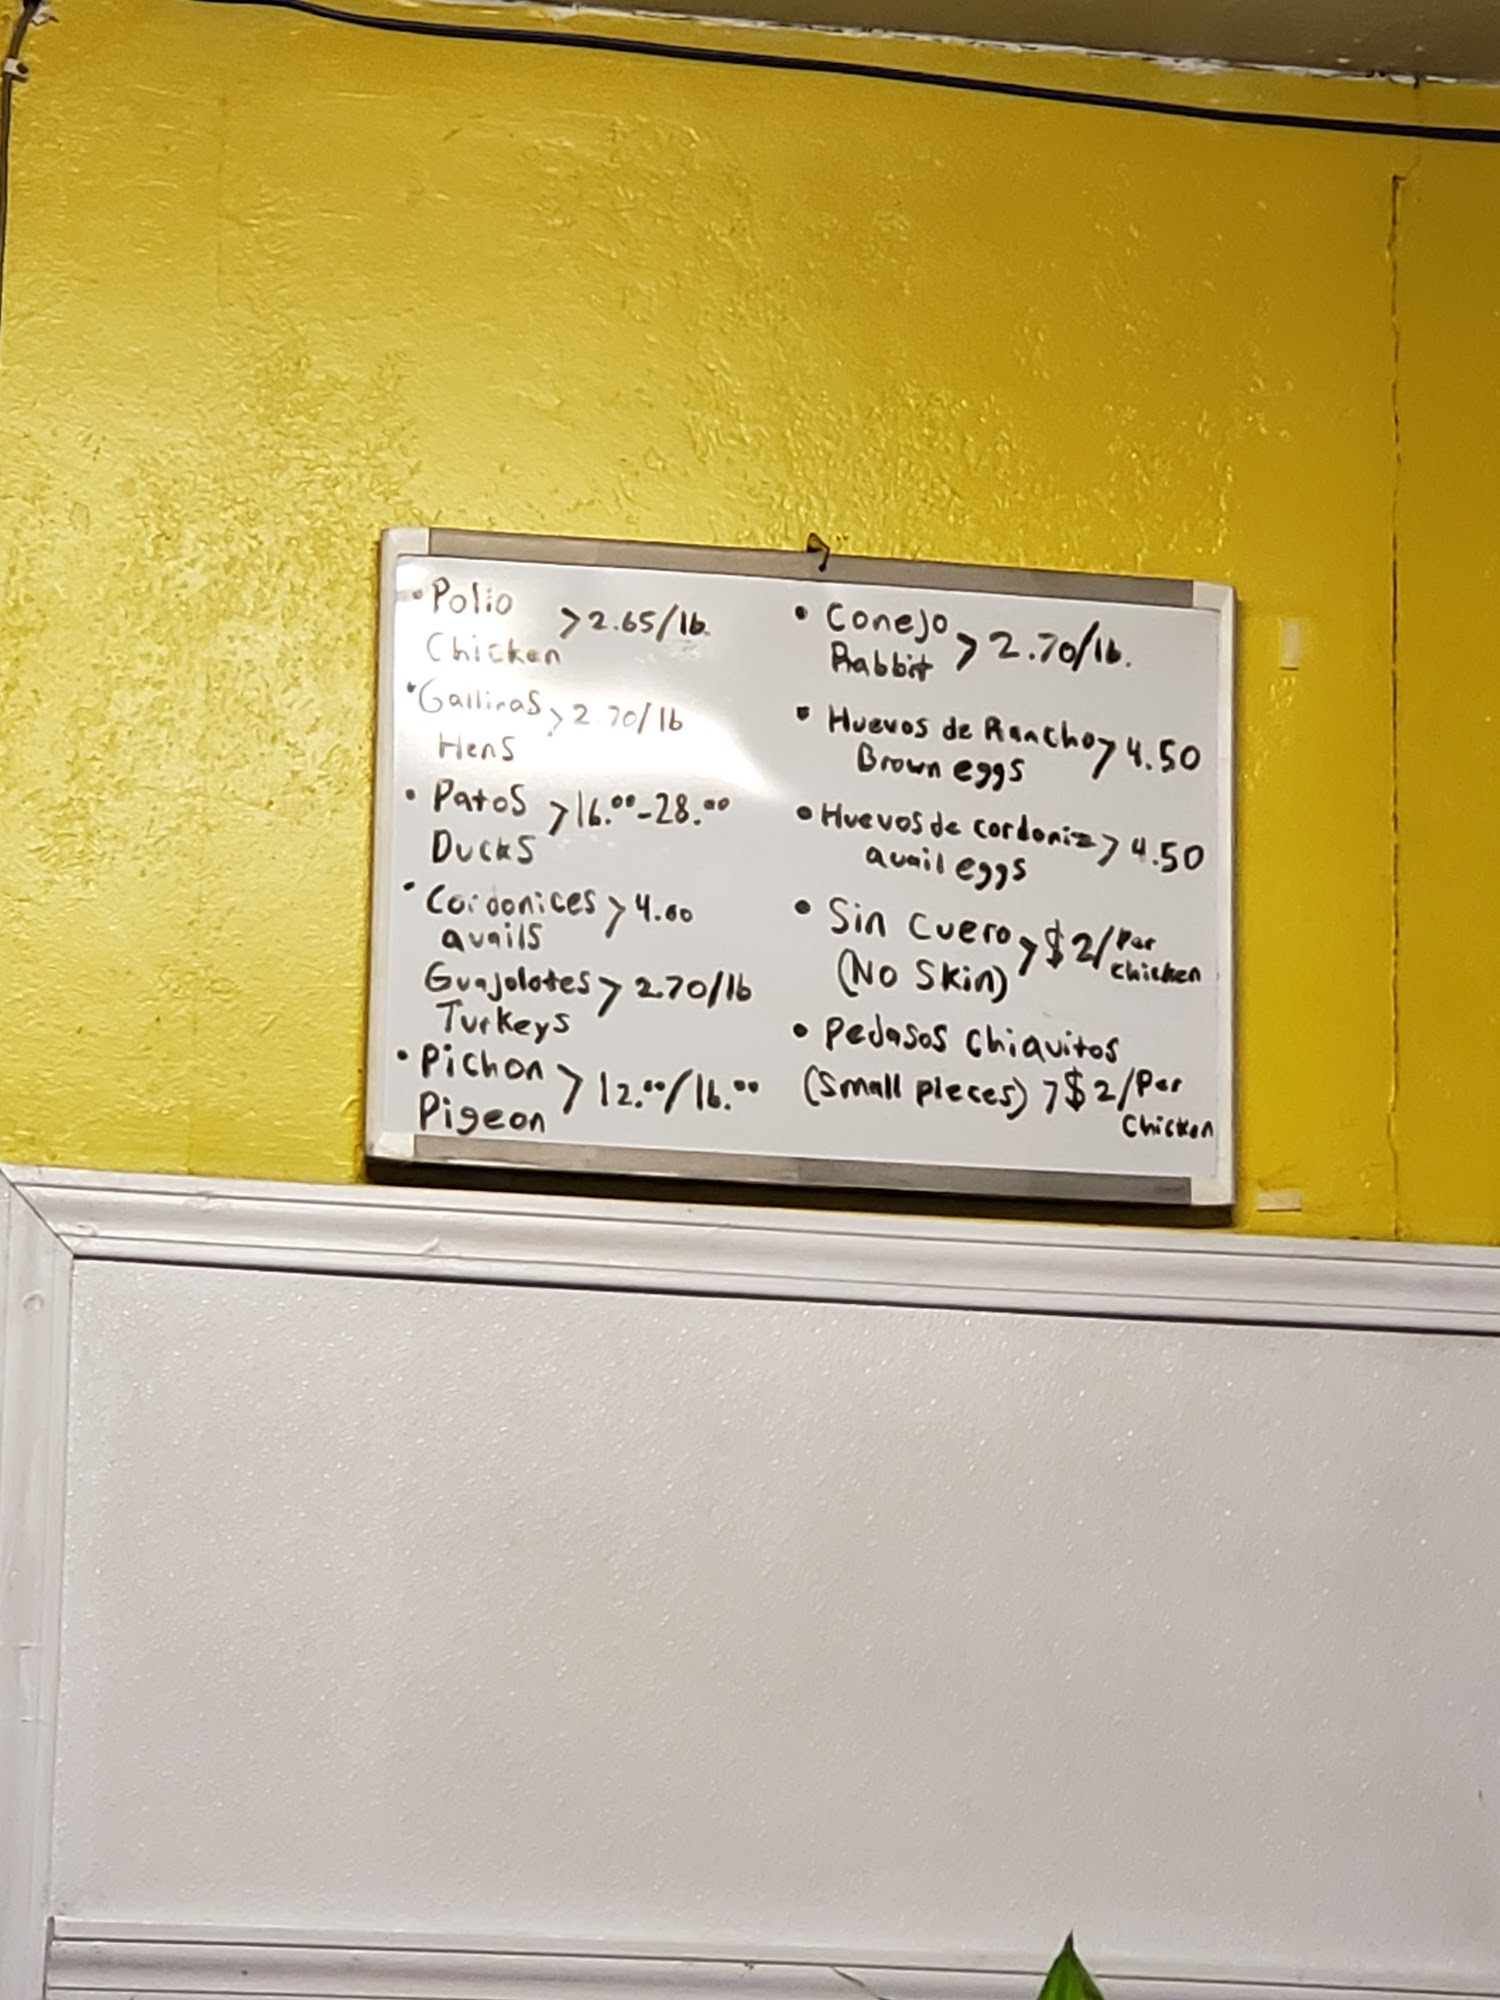 • Pollo
Chicken > 2.65/lb.
• Gallinas > 2.70/lb
Hens
• Patos > 16.00-28.00
Ducks
• Cordonices > 4.00
quails
Guajolotes > 2.70/lb
Turkeys
• Pichon > 12.00/16.00
Pigeon
• Conejo > 2.70/lb.
Rabbit
• Huevos de Rancho > 4.50
Brown eggs
• Huevos de cordoniz > 4.50
quail eggs
• Sin Cuero > $2/Per
(No Skin) chicken
• Pedasos Chiquitos
(Small pieces) > $2/Per
Chicken